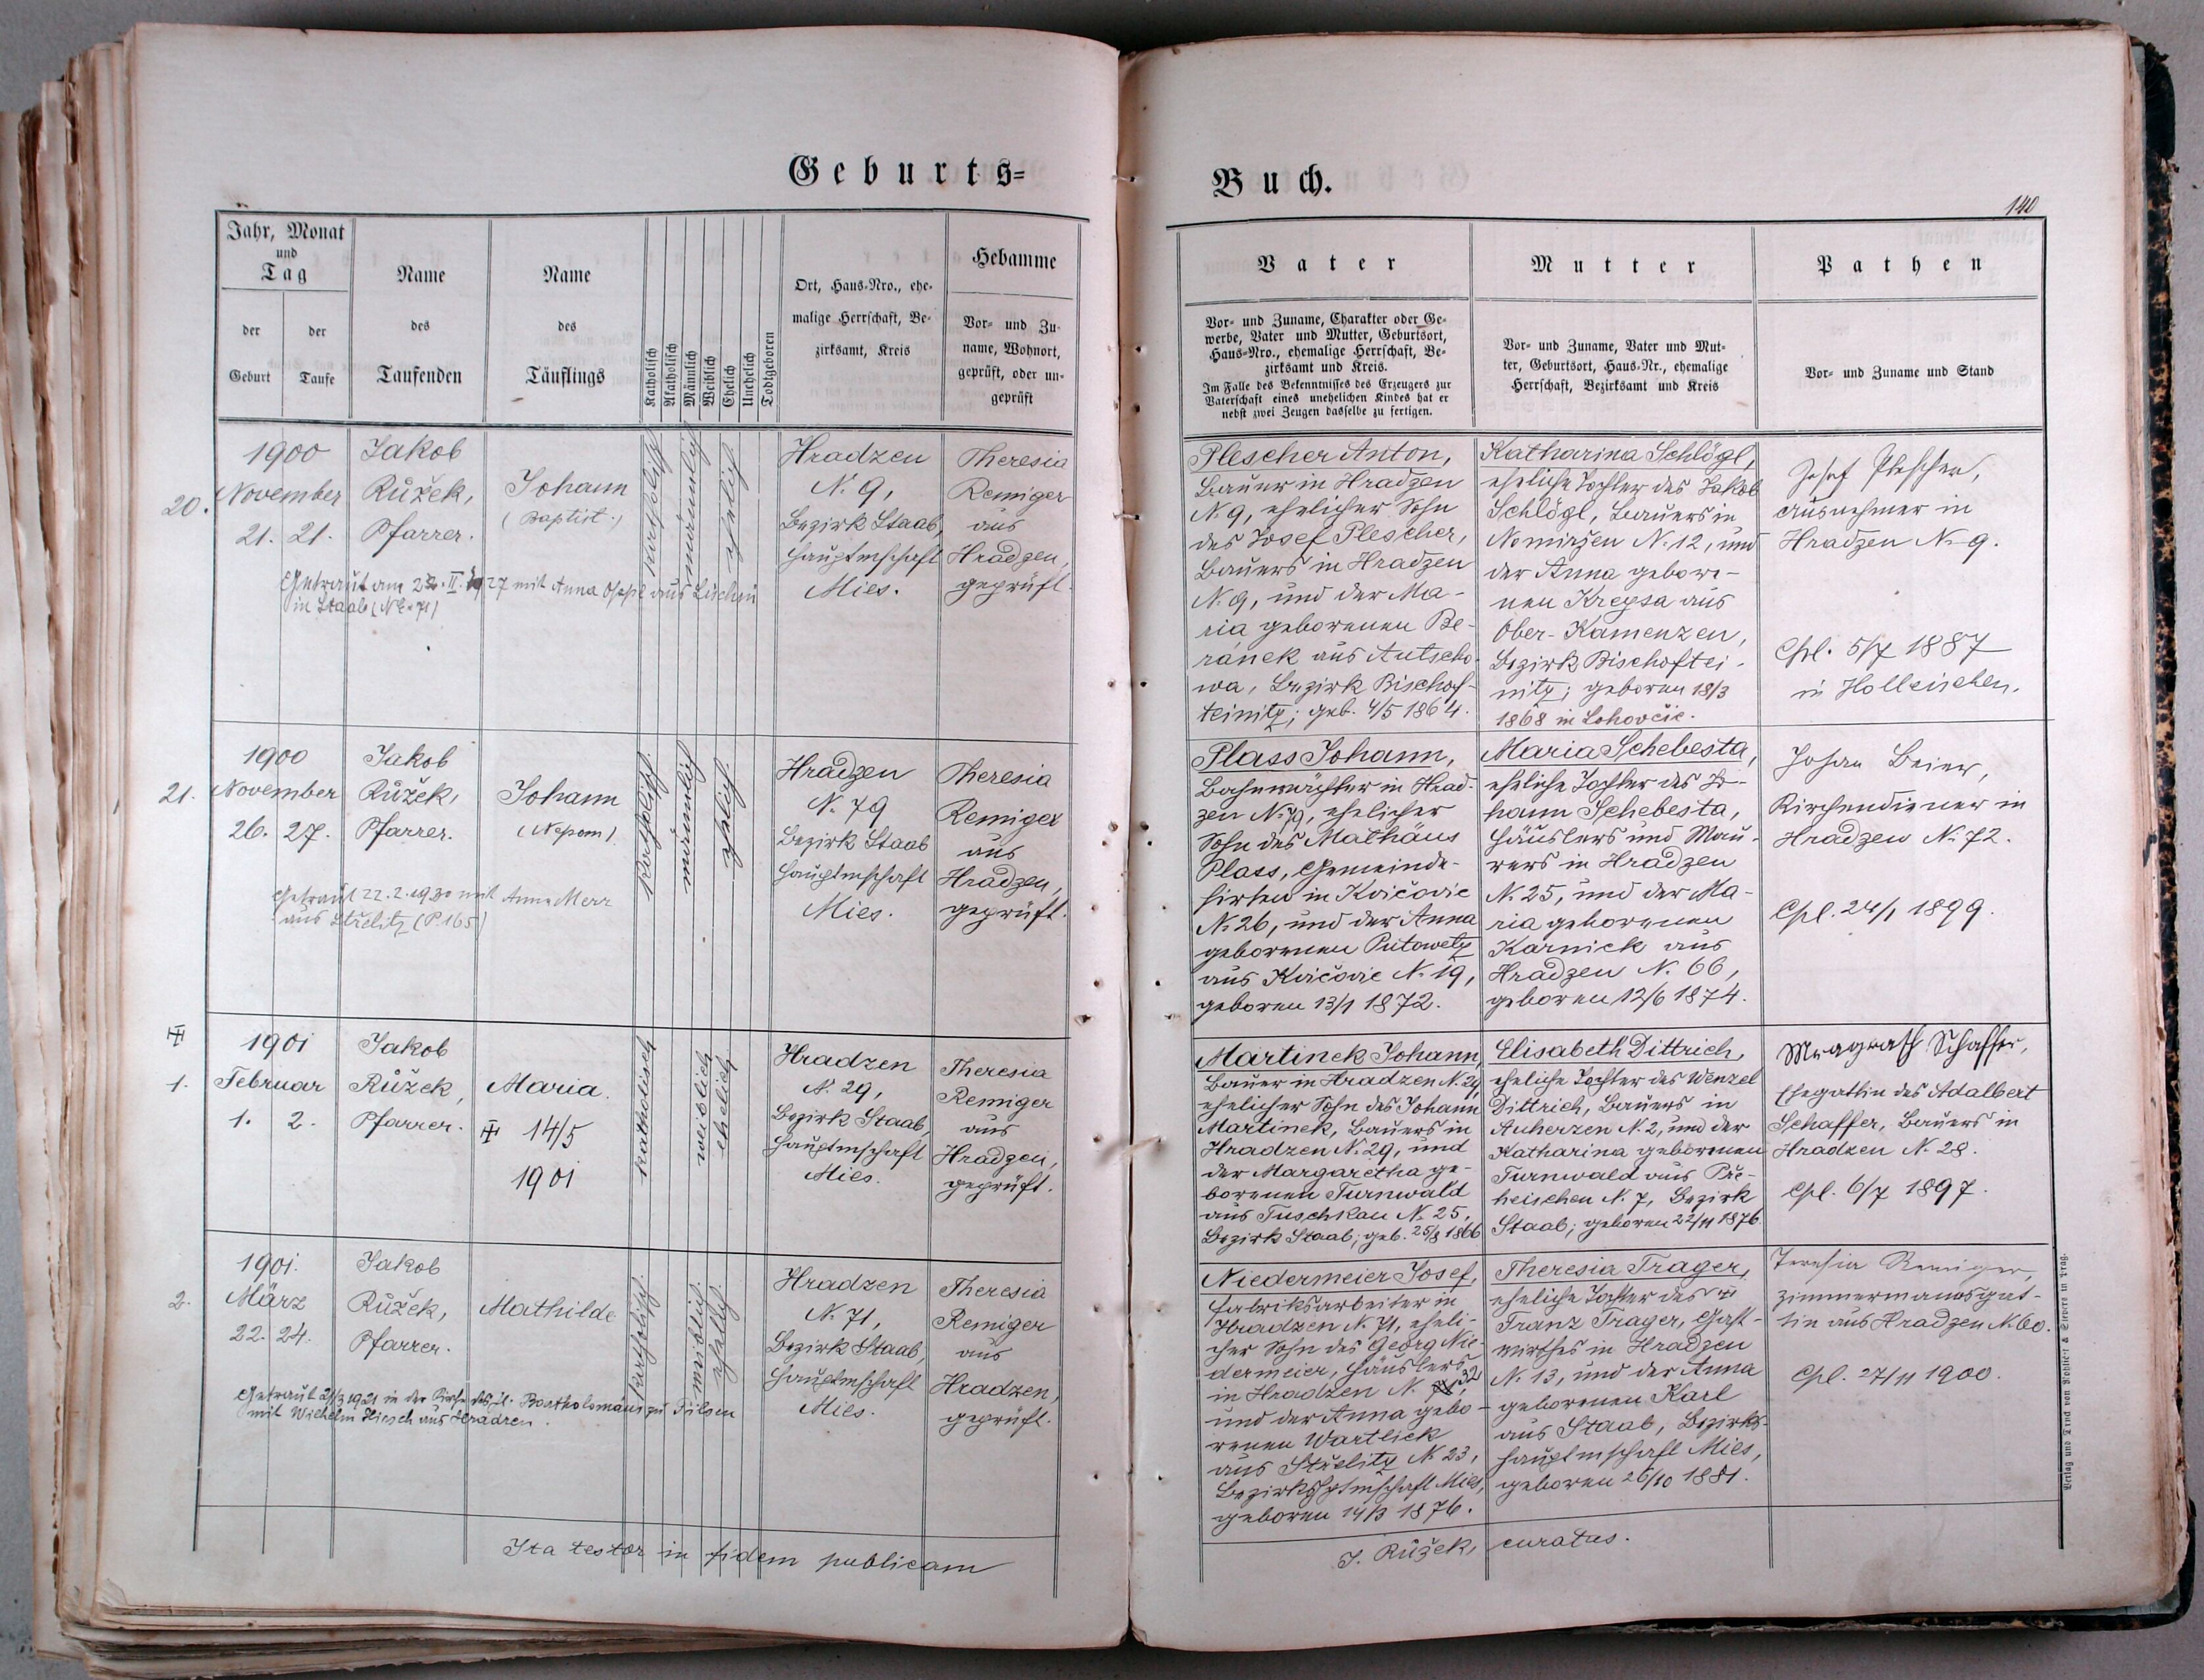 Geburts=
Jahr, Monat
und
Tag
der
Geburt
der
Taufe
Name
des
Taufenden
Name
des
Täuflings
Katholisch
Akatholisch
Männlich
Weiblich
Ehelich
Unehelich
Todtgeboren
Ort, Haus-Nro., ehe-
malige Herrschaft, Be-
zirksamt, Kreis
Hebamme
Vor- und Zu-
name, Wohnort,
geprüft, oder un-
geprüft
20.
1900
November
21. 21.
Jakob
Růžek,
Pfarrer.
Johann
(Baptist.)
katholisch
männlich
ehelich
Hradzen
N. 9,
Bezirk Staab,
Hauptmschaft
Mies.
Theresia
Remiger
aus
Hradzen,
geprüft.
Getraut am
mit Anna
aus
in Staab
21.
1900
November
26. 27.
Jakob
Růžek,
Pfarrer.
Johann
(Nepom)
katholisch
männlich
ehelich
Hradzen
N. 79
Bezirk Staab
Hauptmschaft
Mies.
Theresia
Remiger
aus
Hradzen,
geprüft.
Getraut 22.2.1930 mit Anna Merr
aus Střelitz (P. 165)
1.
1901
Februar
1. 2.
Jakob
Růžek,
Pfarrer.
Maria.
14/5
1901
katholisch
weiblich
ehelich
Hradzen
N. 29,
Bezirk Staab,
Hauptmschaft
Mies.
Theresia
Remiger
aus
Hradzen,
geprüft.
2.
1901.
März
22. 24.
Jakob
Růžek,
Pfarrer.
Mathilde
katholisch
weiblich
ehelich
Hradzen
N. 71,
Bezirk Staab,
Hauptmschaft
Mies.
Theresia
Remiger
aus
Hradzen,
geprüft.
Getraut 1921 in der Kirche des hl. Bartholomäus zu Pilsen
mit Wilhelm Hirsch aus Hradzen.
Ita testor in fidem publicam
Buch.
140
Vater
Vor- und Zuname, Charakter oder Ge-
werbe, Vater und Mutter, Geburtsort,
Haus-Nro., ehemalige Herrschaft, Be-
zirksamt und Kreis.
Im Falle des Bekenntnisses des Erzeugers zur
Vaterschaft eines unehelichen Kindes hat er
nebst zwei Zeugen dasselbe zu fertigen.
Mutter
Vor- und Zuname, Vater und Mut-
ter, Geburtsort, Haus-Nr., ehemalige
Herrschaft, Bezirksamt und Kreis
Pathen
Vor- und Zuname und Stand
Plescher Anton,
Bauer in Hradzen
N. 9, ehelicher Sohn
des Josef Plescher,
Bauers in Hradzen
N. 9, und der Ma-
ria geborenen Be-
ránek aus Autscho-
wa, Bezirk Bischof-
teinitz; geb. 4/5 1864.
Katharina Schlögl,
eheliche Tochter des Jakob
Schlögl, Bauers in
Nemirzen N. 12, und
der Anna gebore-
nen Kreysa aus
Ober-Kamenzen,
Bezirk Bischoftei-
nitz; geboren 18/3
1868 in Lohovčic.
Josef Plescher,
Ausnehmer in
Hradzen N. 9.
Cpl. 5/7 1887
in Holleischen.
Plass Johann,
Bahnwächter in Hrad-
zen N. 79, ehelicher
Sohn des Mathäus
Plass, Gemeinde-
hirten in Kvičovic
N. 26, und der Anna
geborenen Putowetz
aus Kvičovic N. 19,
geboren 13/1 1872.
Maria Schebesta,
eheliche Tochter des Jo-
hann Schebesta,
Häuslers und Mau-
rers in Hradzen
N. 25, und der Ma-
ria geborenen
Karnick aus
Hradzen N. 66,
geboren 12/6 1874.
Johan Beier,
Kirchendiener in
Hradzen N. 72.
Cpl. 24/1 1899.
Martinek Johann,
Bauer in Hradzen N. 29,
ehelicher Sohn des Johann
Martinek, Bauers in
Hradzen N. 29, und
der Margaretha ge-
borenen Turnwald
aus Tuschkau N. 25,
Bezirk Staab; geb. 25/8 1866
Elisabeth Dittrich,
eheliche Tochter des Wenzel
Dittrich, Bauers in
Auherzen N. 2, und der
Katharina geborenen
Turnwald aus Pře-
heischen N. 7, Bezirk
Staab; geboren 22/11 1876.
Schaffer,
Ehegattin des Adalbert
Schaffer, Bauers in
Hradzen N. 28.
Cpl. 6/7 1897.
Niedermeier Josef,
Fabriksarbeiter in
Hradzen N. 71, eheli-
cher Sohn des Georg Nie-
dermeier, Häuslers
in Hradzen N. 32,
und der Anna gebo-
renen Wartlick
aus Střelitz N. 23,
Bezirkshptmschaft Mies,
geboren 14/3 1876.
Theresia Trager,
eheliche Tochter des
Franz Trager, Gast-
wirthes in Hradzen
N. 13, und der Anna
geborenen Karl
aus Staab, Bezirks-
hauptmschaft Mies,
geboren 26/10 1881.
Teresia Remiger,
Zimmermannsgat-
tin aus Hradzen N. 60.
Cpl. 27/11 1900.
J. Růžek, curatus.
Verlag und Druck von Rohliček & Sievers in Prag.